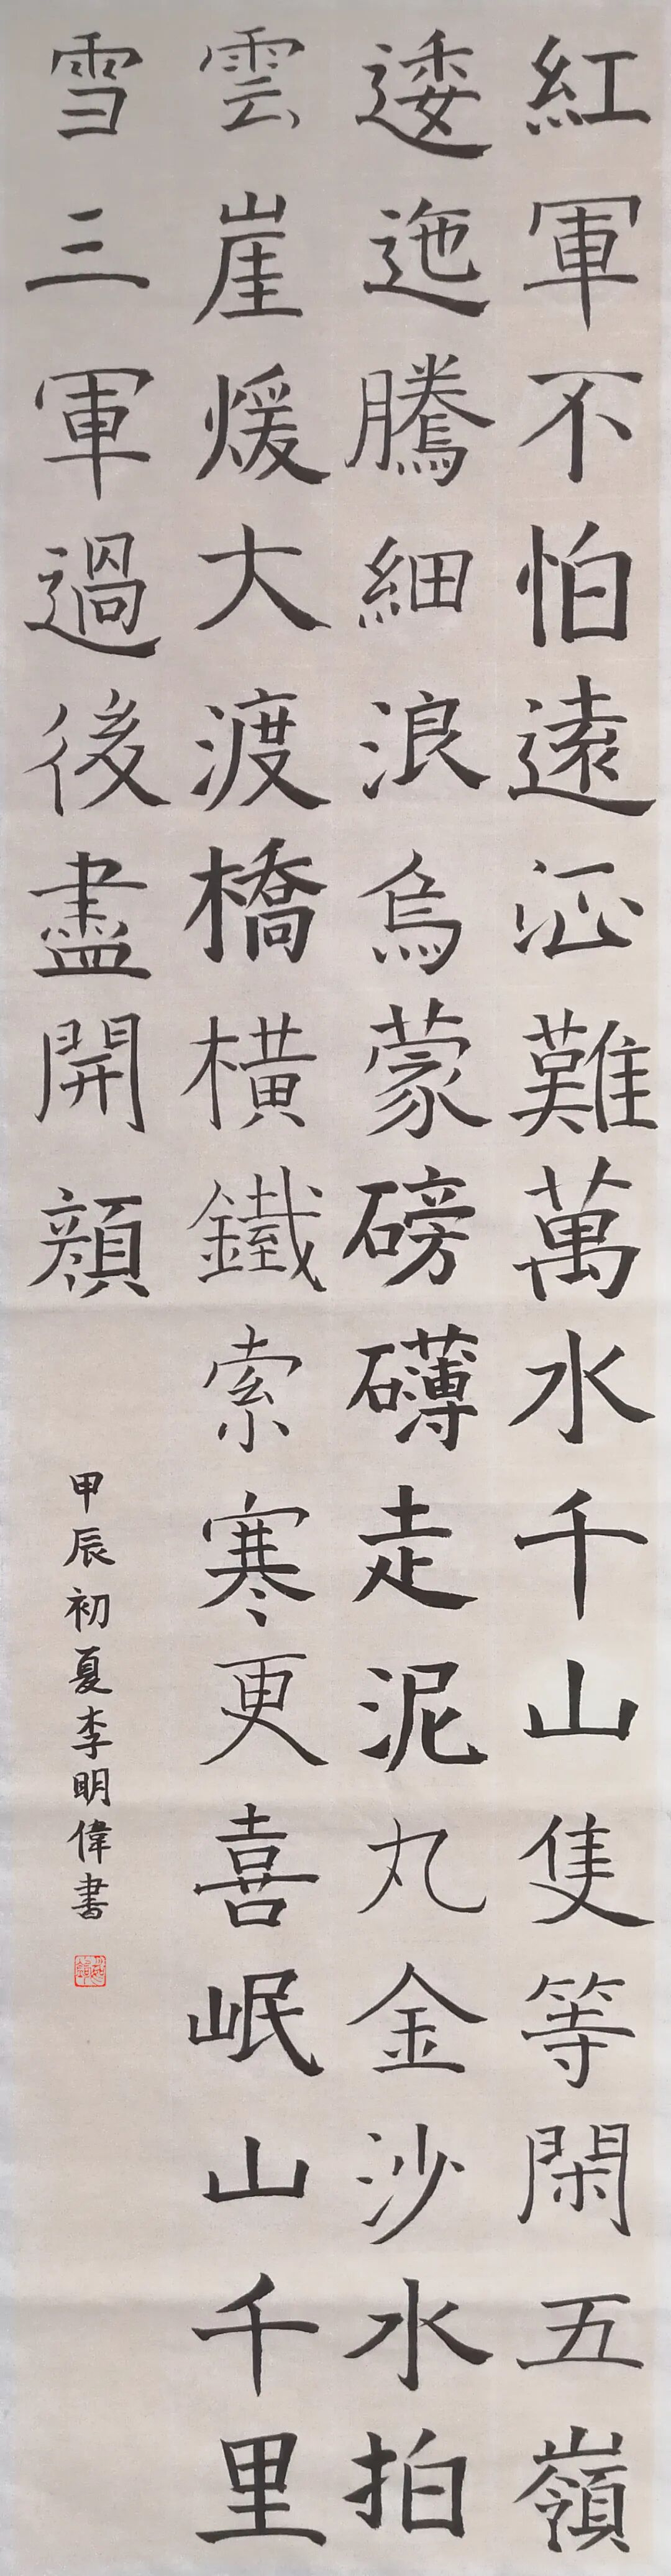 紅軍不怕遠征難萬水千山隻等閑五嶺
逶迤騰細浪烏蒙磅礴走泥丸金沙水拍
雲崖煖大渡橋橫鐵索寒更喜岷山千里
雪三軍過後盡開顏
甲辰初夏李明偉書